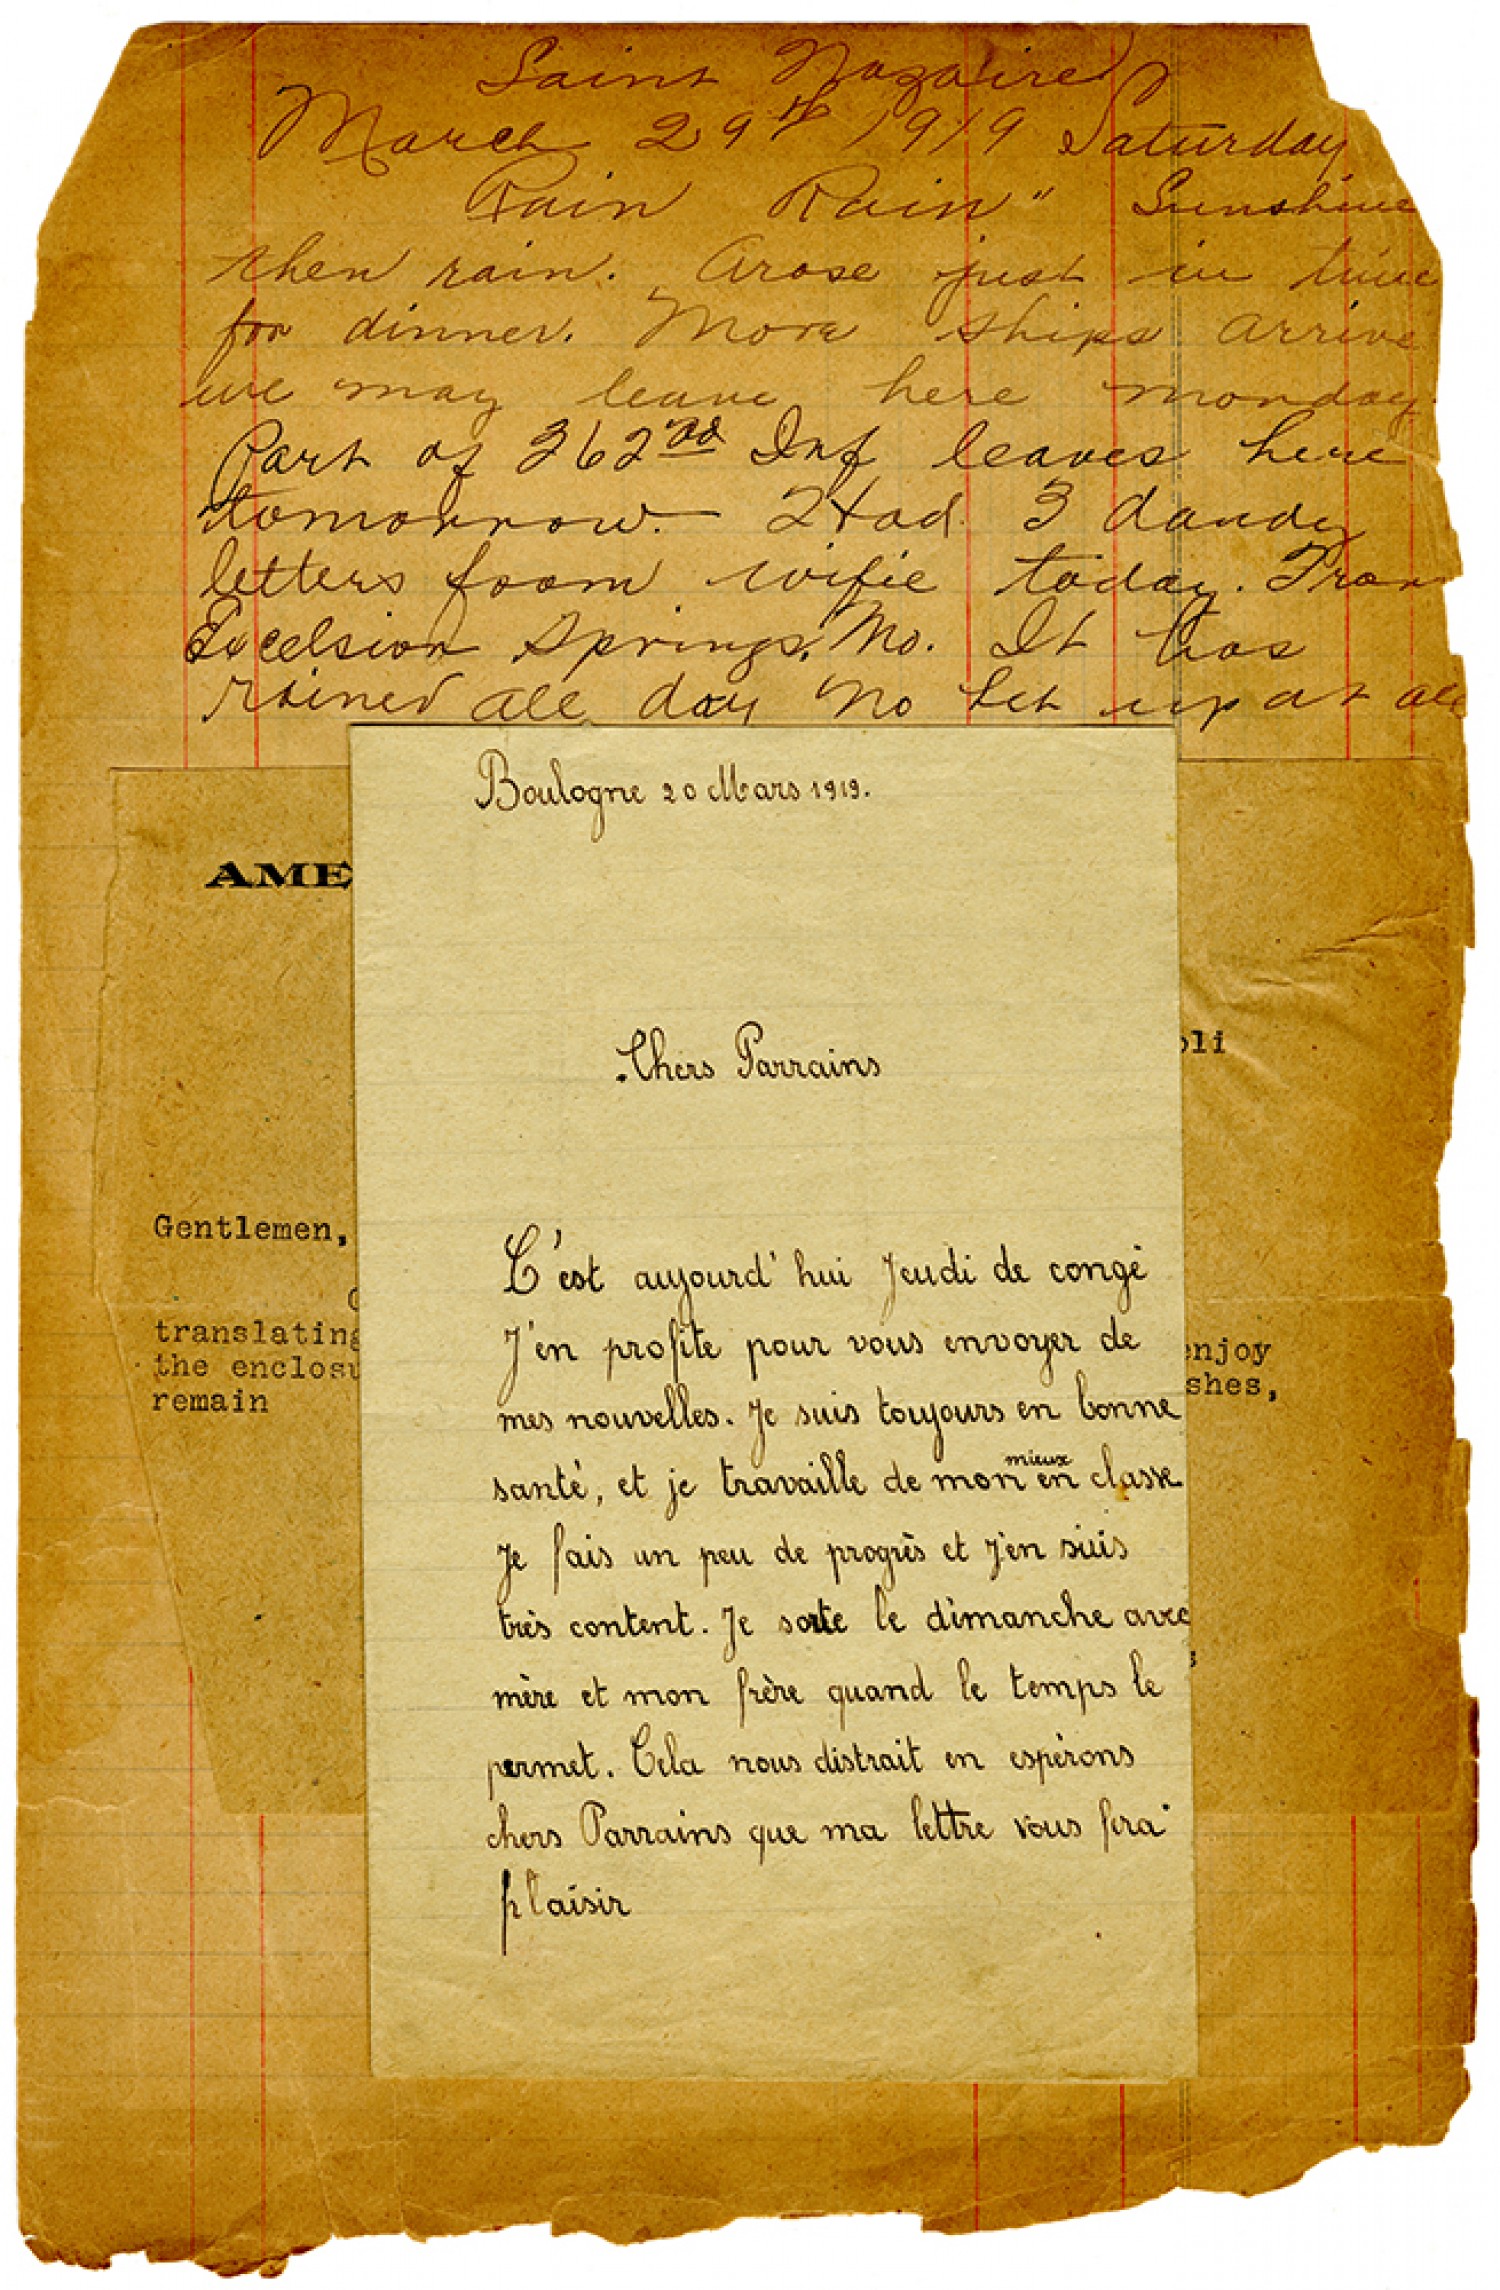 Saint Nazaire
March 29th 1919 Saturday
Rain Rain" Sunshine
then rain. Arose just in time
for dinner. More ships arrive
we may leave here Monday.
Part of 362nd Inf leaves here
tomorrow. Had 3 dandy
letters from wifie today. From
Excelsior Springs, Mo. It has
rained all day no let up at all
Boulogne 20 Mars 1919.
AME
Chers Parrains
oli
Gentlemen,
C'est aujourd'hui Jeudi de congé
J'en profite pour vous envoyer de
mes nouvelles. Je suis toujours en bonne
santé, et je travaille de mon mieux en classe
Je fais un peu de progrès et j'en suis
très content. Je sorte le dimanche avec
mère et mon frère quand le temps le
permet. Cela nous distrait en espèrons
chers Parrains que ma lettre vous fera
plaisir
translating
the enclosu
remain
enjoy
shes,